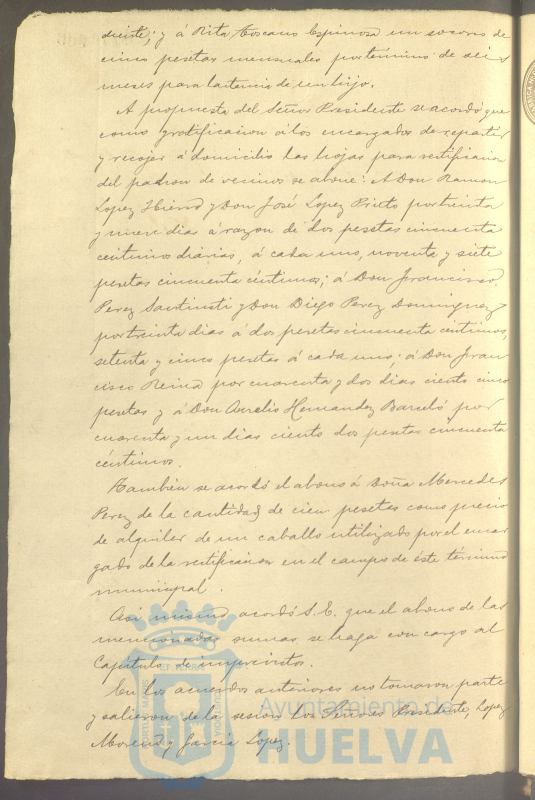 diente; y á Rita Toscano Espinosa un socorro de
cinco pesetas mensuales por término de seis
meses para lactancia de un hijo.
A propuesta del Señor Presidente se acordó que
como gratificacion á los encargados de repartir
y recojer á domicilio las hojas para rectificacion
del padron de vecinos se abone: A Don Ramon
Lopez Hierro y Don José Lopez Prieto por treinta
y nueve dias á razon de dos pesetas cincuenta
céntimos diarios, á cada uno, noventa y siete
pesetas cincuenta céntimos; á Don Francisco
Perez y Don Diego Perez Dominguez
por treinta dias á dos pesetas cincuenta céntimos,
setenta y cinco pesetas á cada uno; á Don Fran
cisco Reina por cuarenta y dos dias ciento cinco
pesetas y á Don Aurelio Hernandez Barceló por
cuarenta y un dias ciento dos pesetas cincuenta
céntimos.
Tambien se acordó el abono á Doña Mercedes
Perez de la cantidad de cien pesetas como precio
de alquiler de un caballo utilizado por el encar
gado de la rectificacion en el campo de este término
municipal.
Asi mismo acordó S.E. que el abono de las
mencionadas sumas se haga con cargo al
Capítulo de imprevistos.
En los acuerdos anteriores no tomaron parte
y salieron de la sesion los Señores Presidente, Lopez
Moreno y Garcia Lopez.
Ayuntamiento de
HUELVA